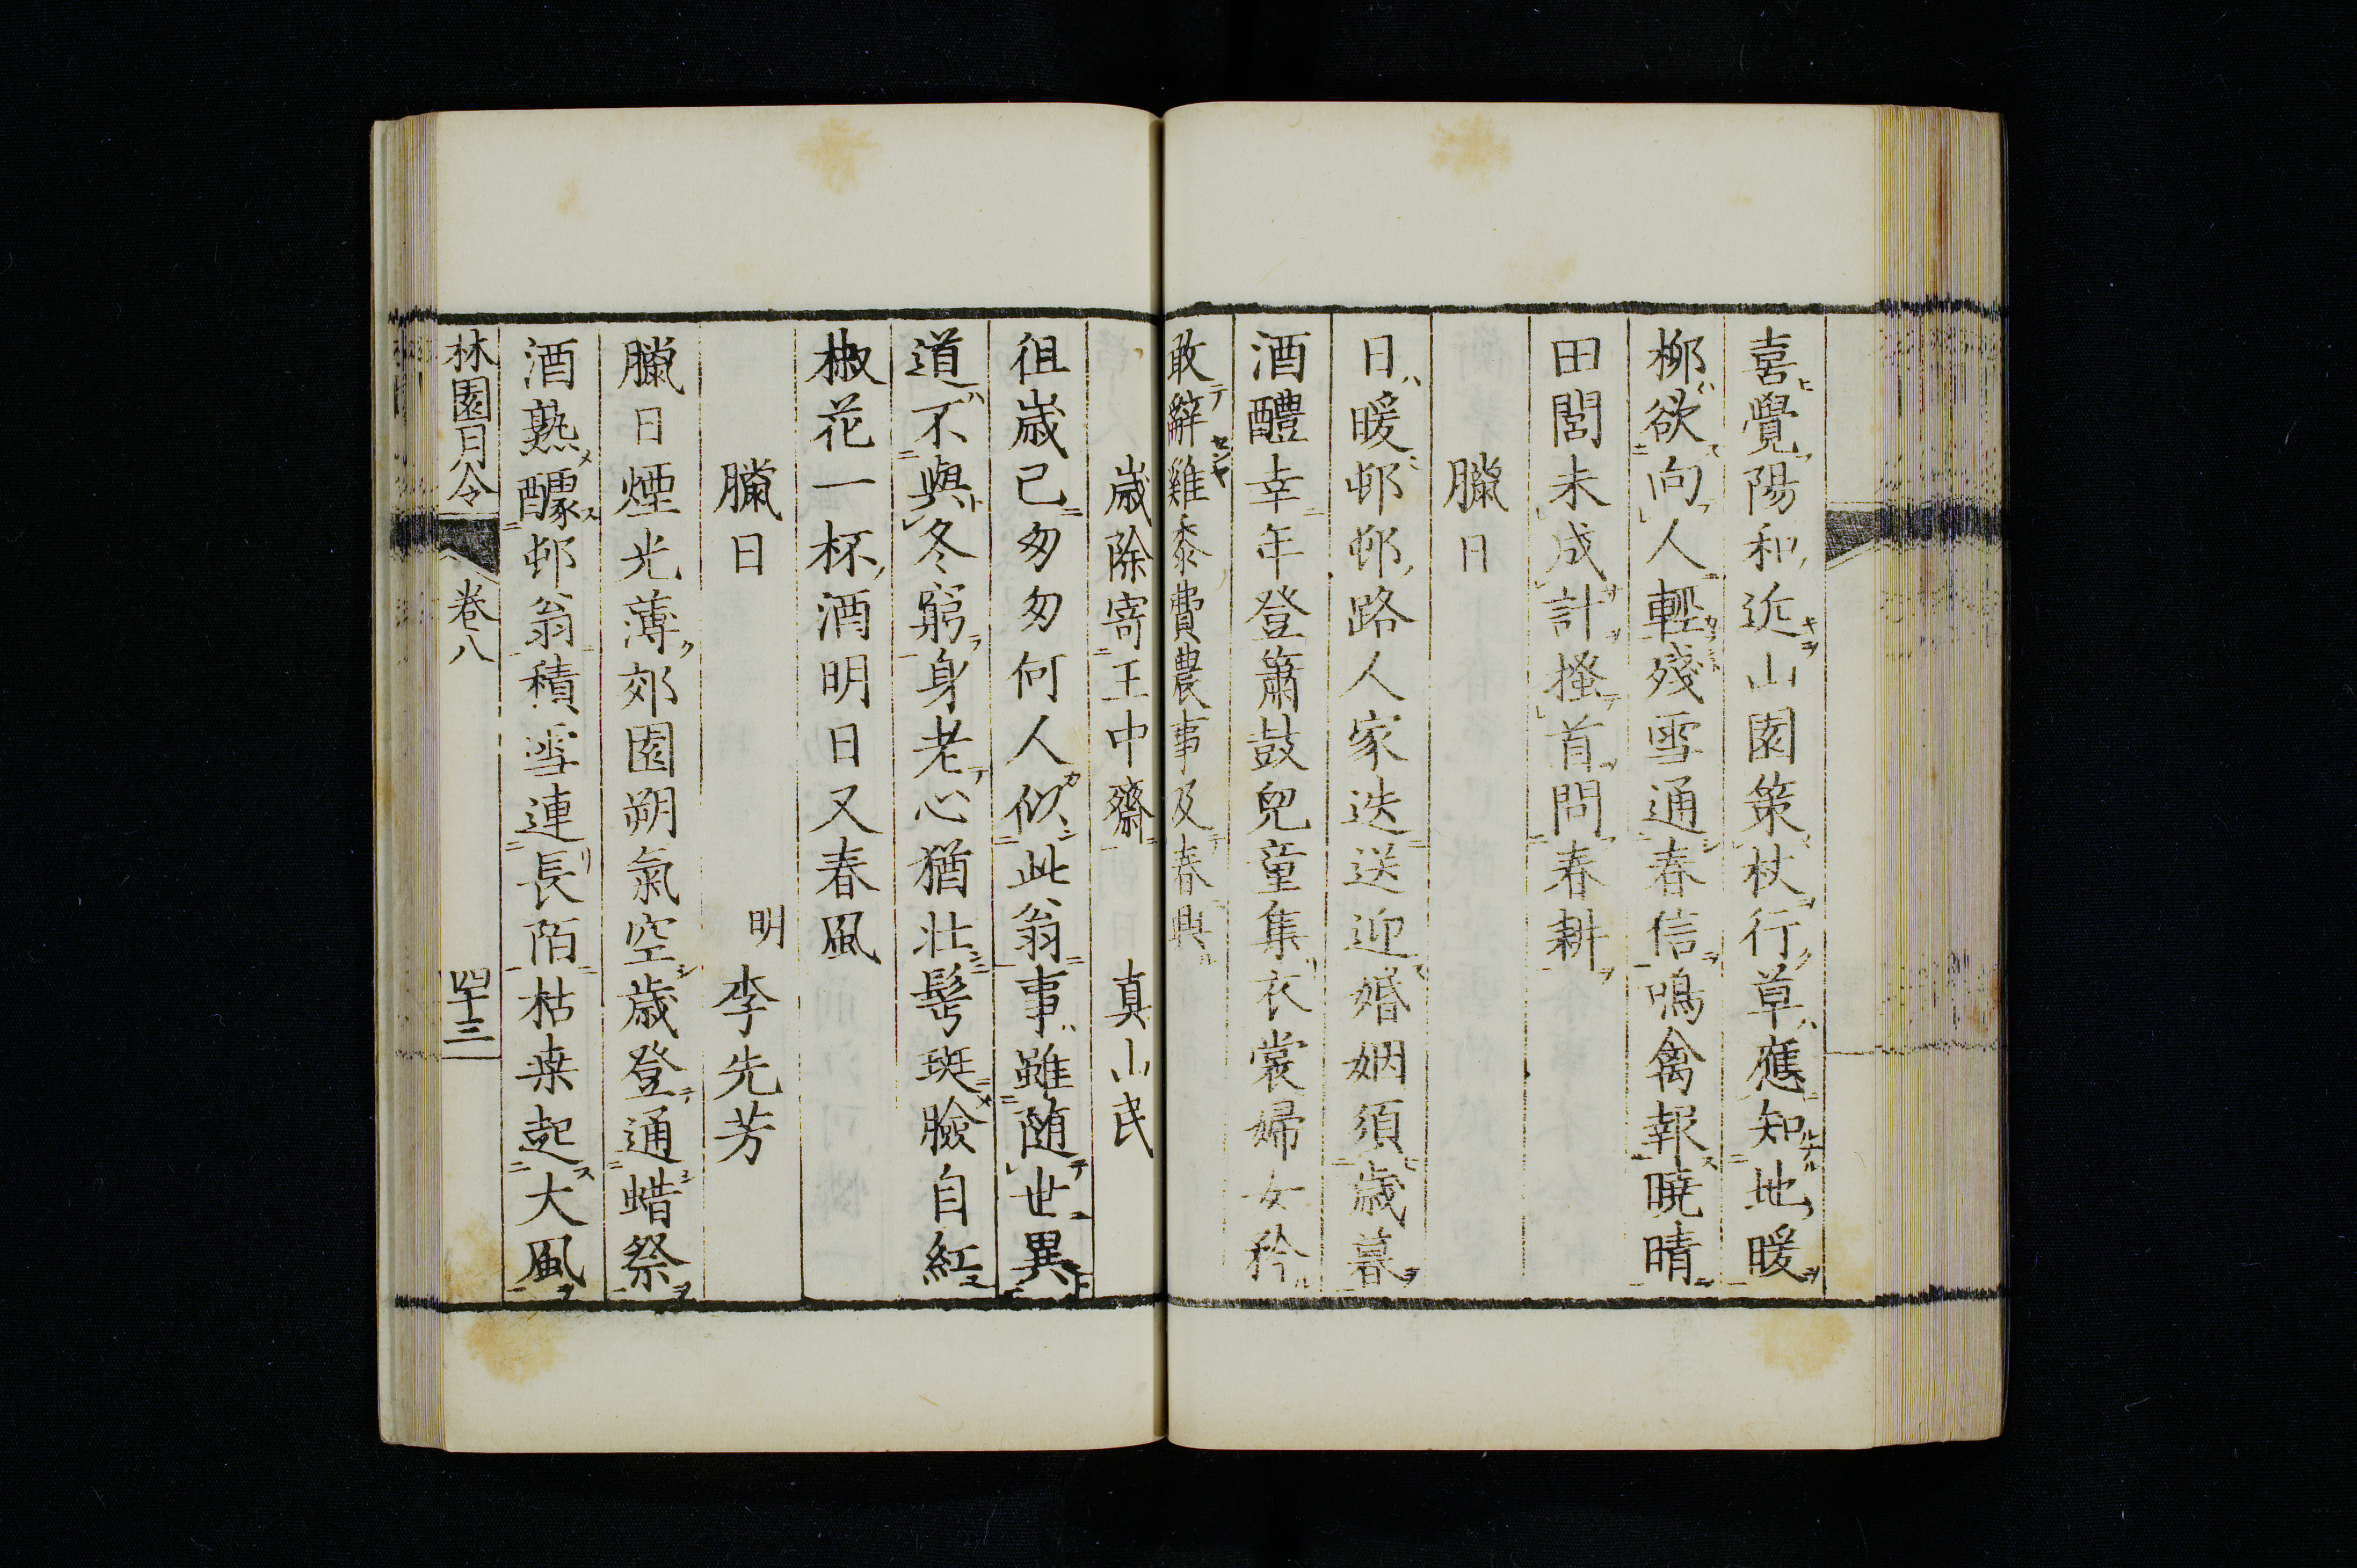 喜覺陽和近山園策杖行草應知地暖
柳欲向人輕殘雪通春信鳴禽報曉晴
田閭未成計搔首問春耕
臘日
日暖邨邨路人家迭送迎婚姻須歲暮
酒醴幸年登簫鼓兒童集衣裳婦女矜
敢辭雞黍費農事及春興
歲除寄王中齋 真山民
徂歲已匆匆何人似此翁事雖随世異
道不與冬窮身老心猶壯髩斑臉自紅
椒花一杯酒明日又春風
臘日 明 李先芳
臘日煙光薄郊園朔氣空歲登通蜡祭
酒熟醵邨翁積雪連長陌枯桒起大風
林園月令 卷八 四十三